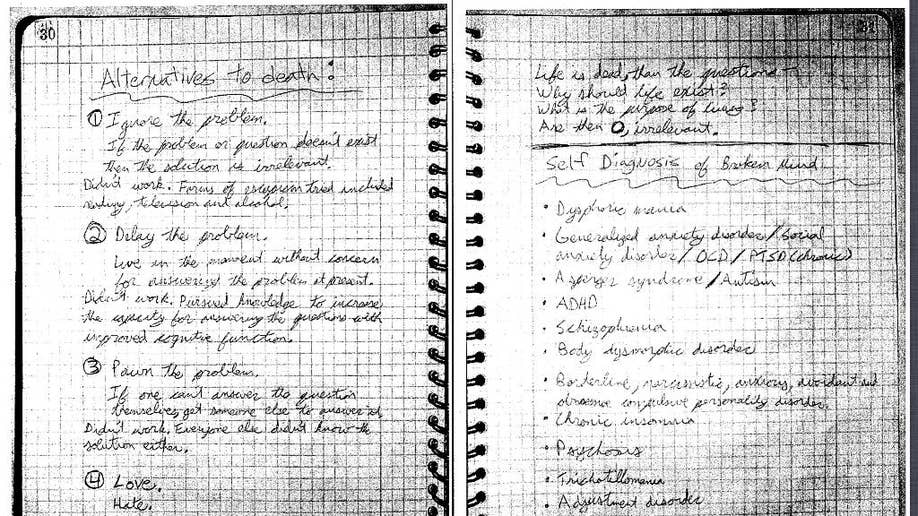 30
Alternatives to death:
① Ignore the problem.
If the problem or question doesn't exist
then the solution is irrelevant.
Didn't work. Forms of escapism tried included
reading, television and alcohol.
② Delay the problem.
Live in the moment without concern
for answering the problem at present.
Didn't work. Pursued knowledge to increase
the capacity for answering the questions with
improved cognitive function.
③ Pawn the problem.
If one can't answer the question
themselves, get someone else to answer it.
Didn't work. Everyone else didn't know the
solution either.
④ Love.
Hate.
31
Life is dead, than the questions
Why should life exist?
What is the purpose of living?
Are then O, irrelevant.
Self Diagnosis of Broken Mind
• Dysphoric mania
• Generalized anxiety disorder/Social
anxiety disorder/OCD/PTSD (chronic)
• Asperger syndrome/Autism
• ADHD
• Schizophrenia
• Body dysmorphic disorder
• Borderline, narcissistic, anxious, avoidant and
obsessive compulsive personality disorder.
• Chronic insomnia
• Psychosis
• Trichotillomania
• Adjustment disorder